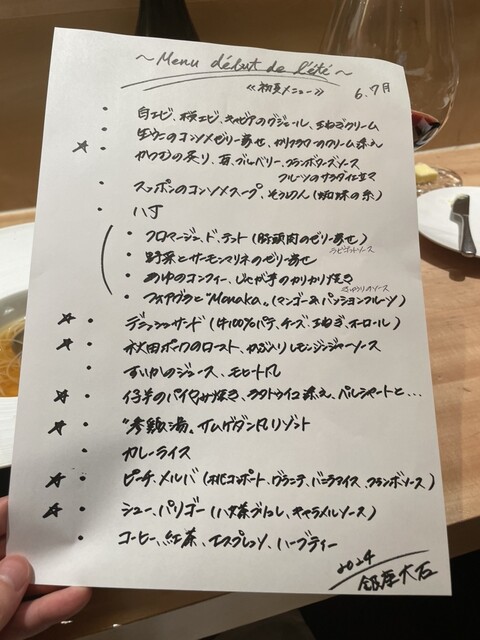 ~Menu début de l'été~
≪初夏メニュー≫ 6.7月
・白エビ、桜エビ、キャビアのグジェール、玉ねぎクリーム
・生ウニのコンソメゼリー寄せ、カリフラワーのクリーム添え
☆ カツオの炙り、苺、ブルーベリー、フランボワーズソース
フルーツのサラダ仕立て
・スッポンのコンソメスープ、そうめん(蜘蛛の糸)
・八寸
・フロマージュ、ド、テット(豚頭肉のゼリー寄せ)
ラビゴットソース
・野菜とサーモンマリネのゼリー寄せ
・あゆのコンフィー、じゃが芋のカリカリ焼き
きゅうりのソース
・フォアグラと"Monaka"(マンゴー&パッションフルーツ)
☆・デミッシュサンド(牛100%パテ、チーズ、玉ねぎ、オーロール)
☆・秋田ポークのロースト、かぶ入りレモンジンジャーソース
・すいかのジュース、モヒート風
☆・仔羊のパイヤッソン焼き、ラタトゥイユ添え、バルシャートと…
☆・"参鶏湯"サムゲタン風リゾット
・カレーライス
☆・ピーチ、メルバ(桃コンポート、グラニテ、バニラアイス、フランボソース)
☆・シュー、パリゴー(八女茶ブリュレ、キャラメルソース)
・コーヒー、紅茶、エスプレッソ、ハーブティー
2024
銀座大石